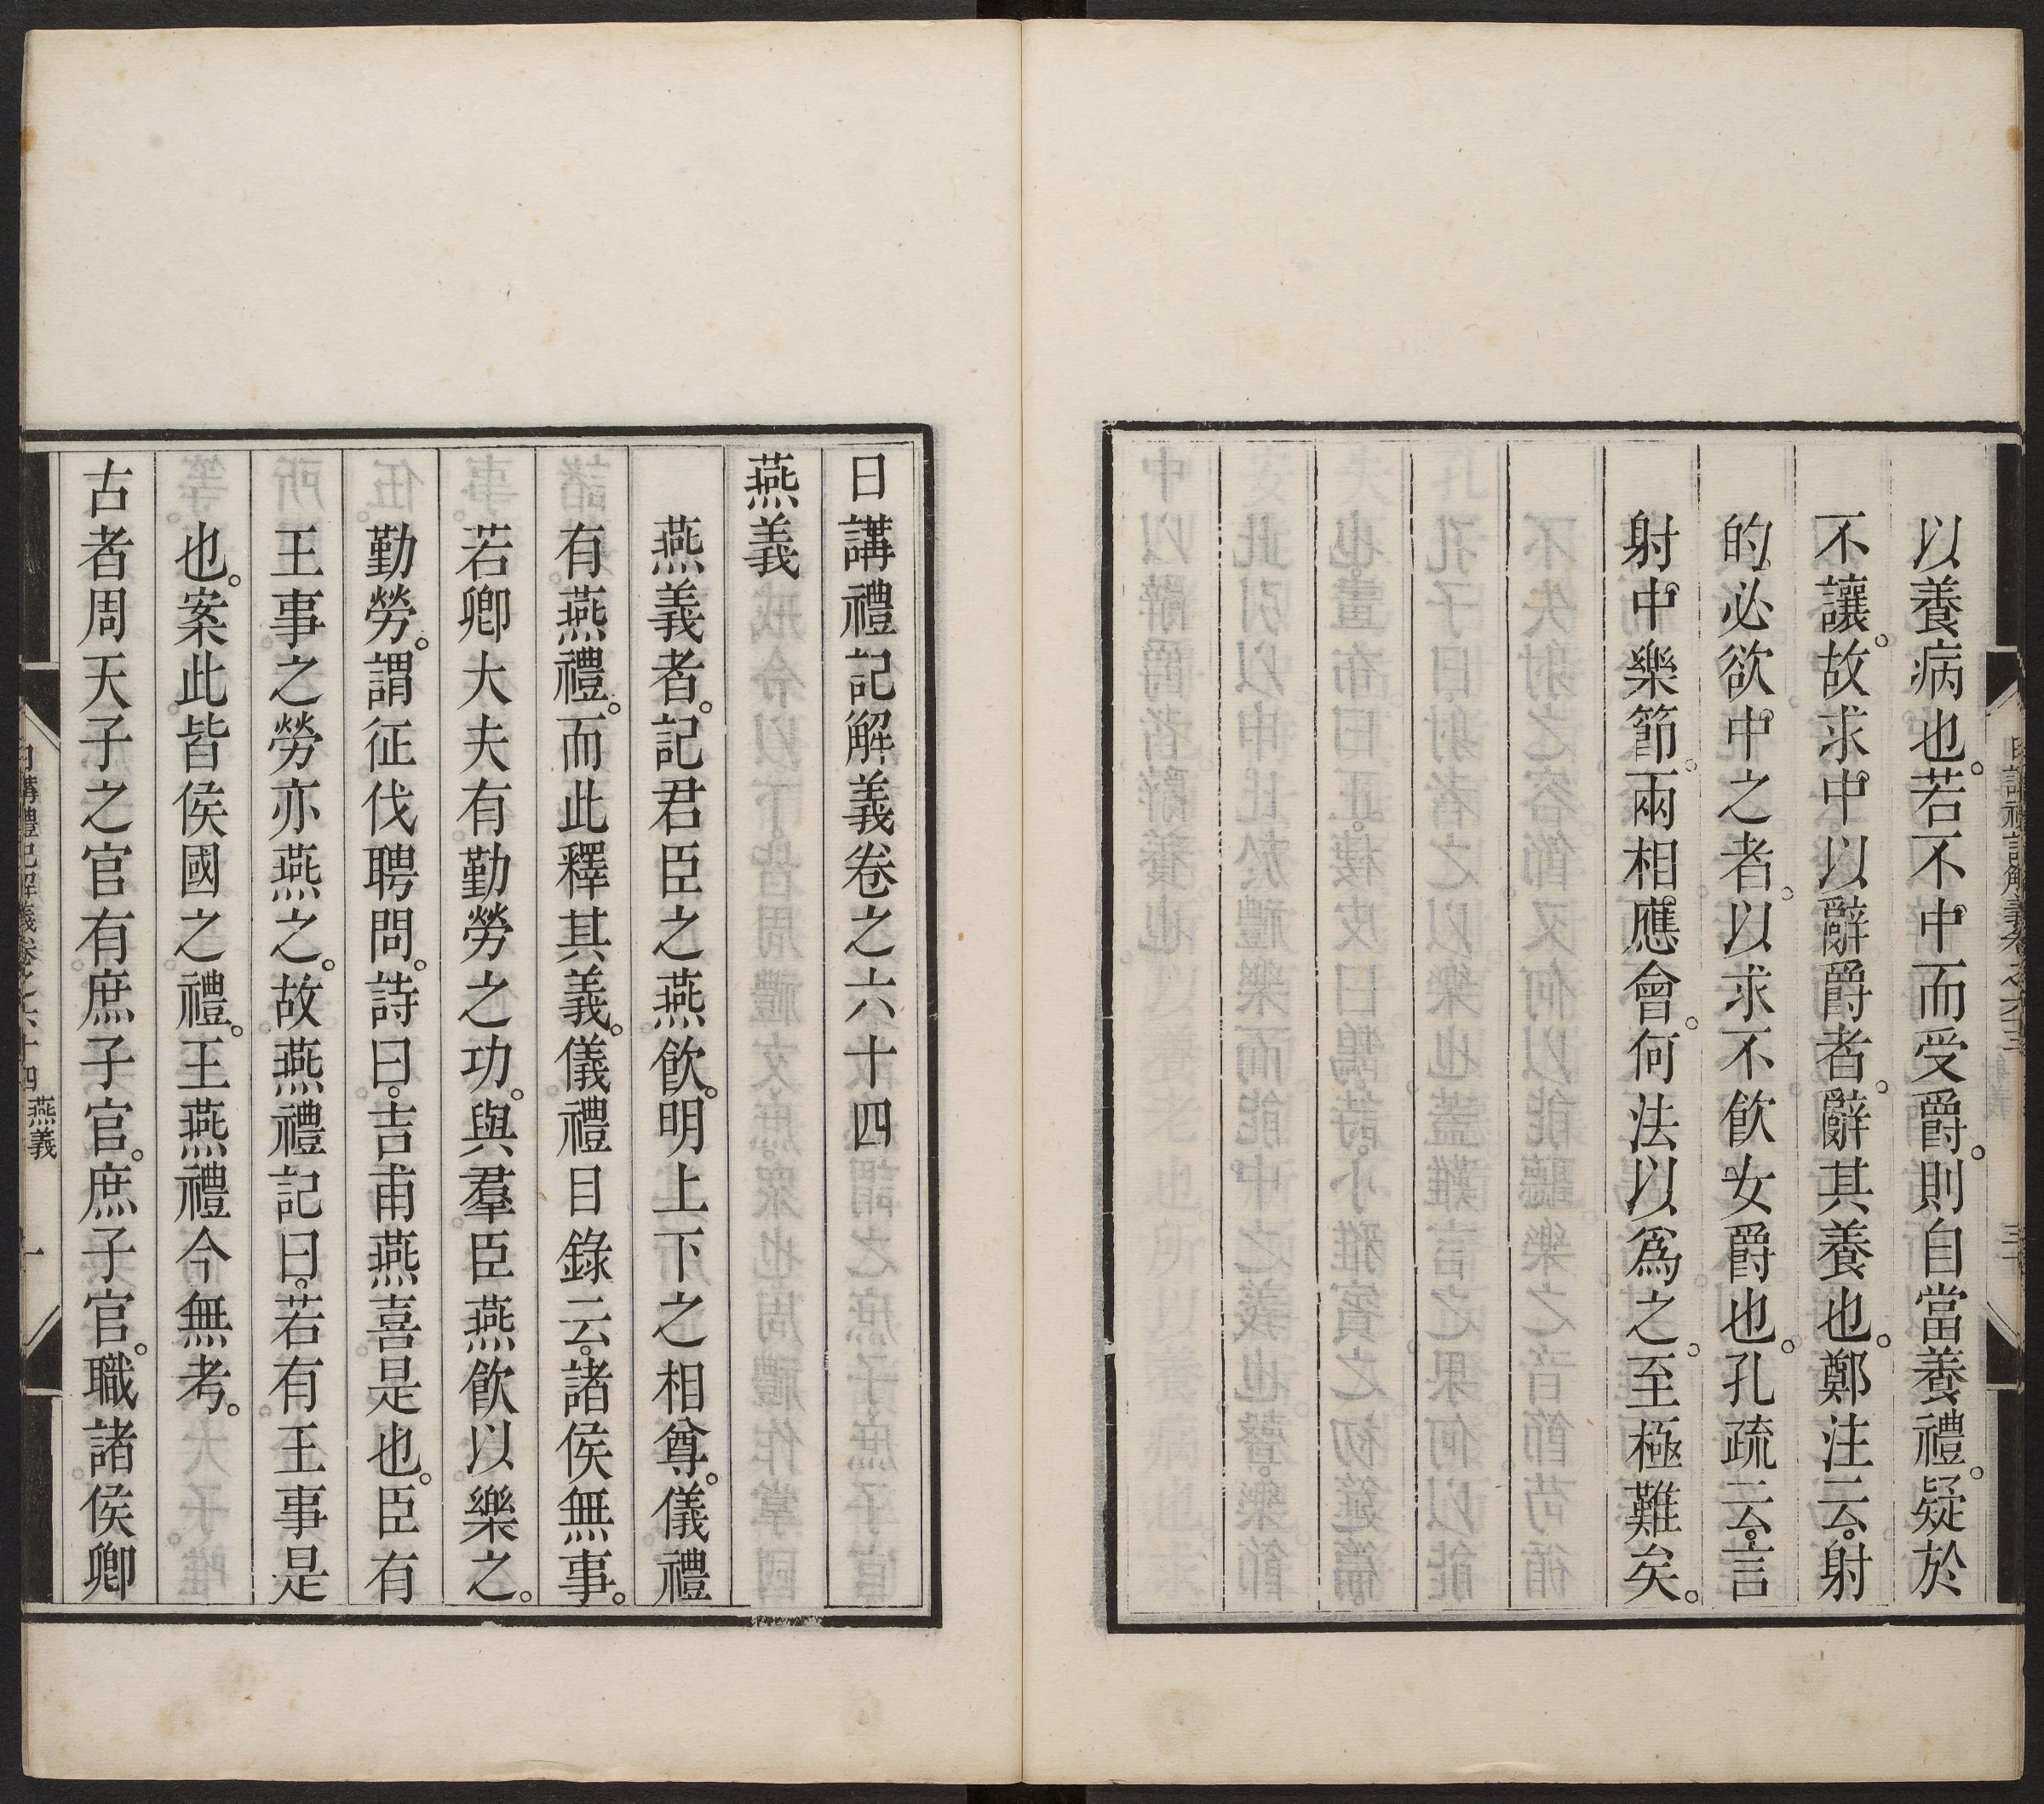 以養病也。若不中而受爵。則自當養禮。疑於
不讓。故求中以辭爵者。辭其養也。鄭注云。射
的必欲中之者。以求不飮女爵也。孔疏云。言
射中樂節。兩相應會。何法以爲之。至極難矣。
日講禮記解義卷之六十三
日講禮記解義卷之六十四
燕義
燕義者。記君臣之燕飮。明上下之相尊。儀禮
有燕禮。而此釋其義。儀禮目錄云。諸侯無事。
若卿大夫有勤勞之功。與羣臣燕飮以樂之。
勤勞。謂征伐聘問。詩曰。吉甫燕喜是也。臣有
王事之勞亦燕之。故燕禮記曰。若有王事是
也。案此皆侯國之禮。王燕禮今無考。
古者周天子之官有庶子官。庶子官。職諸侯卿
日講禮記解義卷之六十四 燕義 一